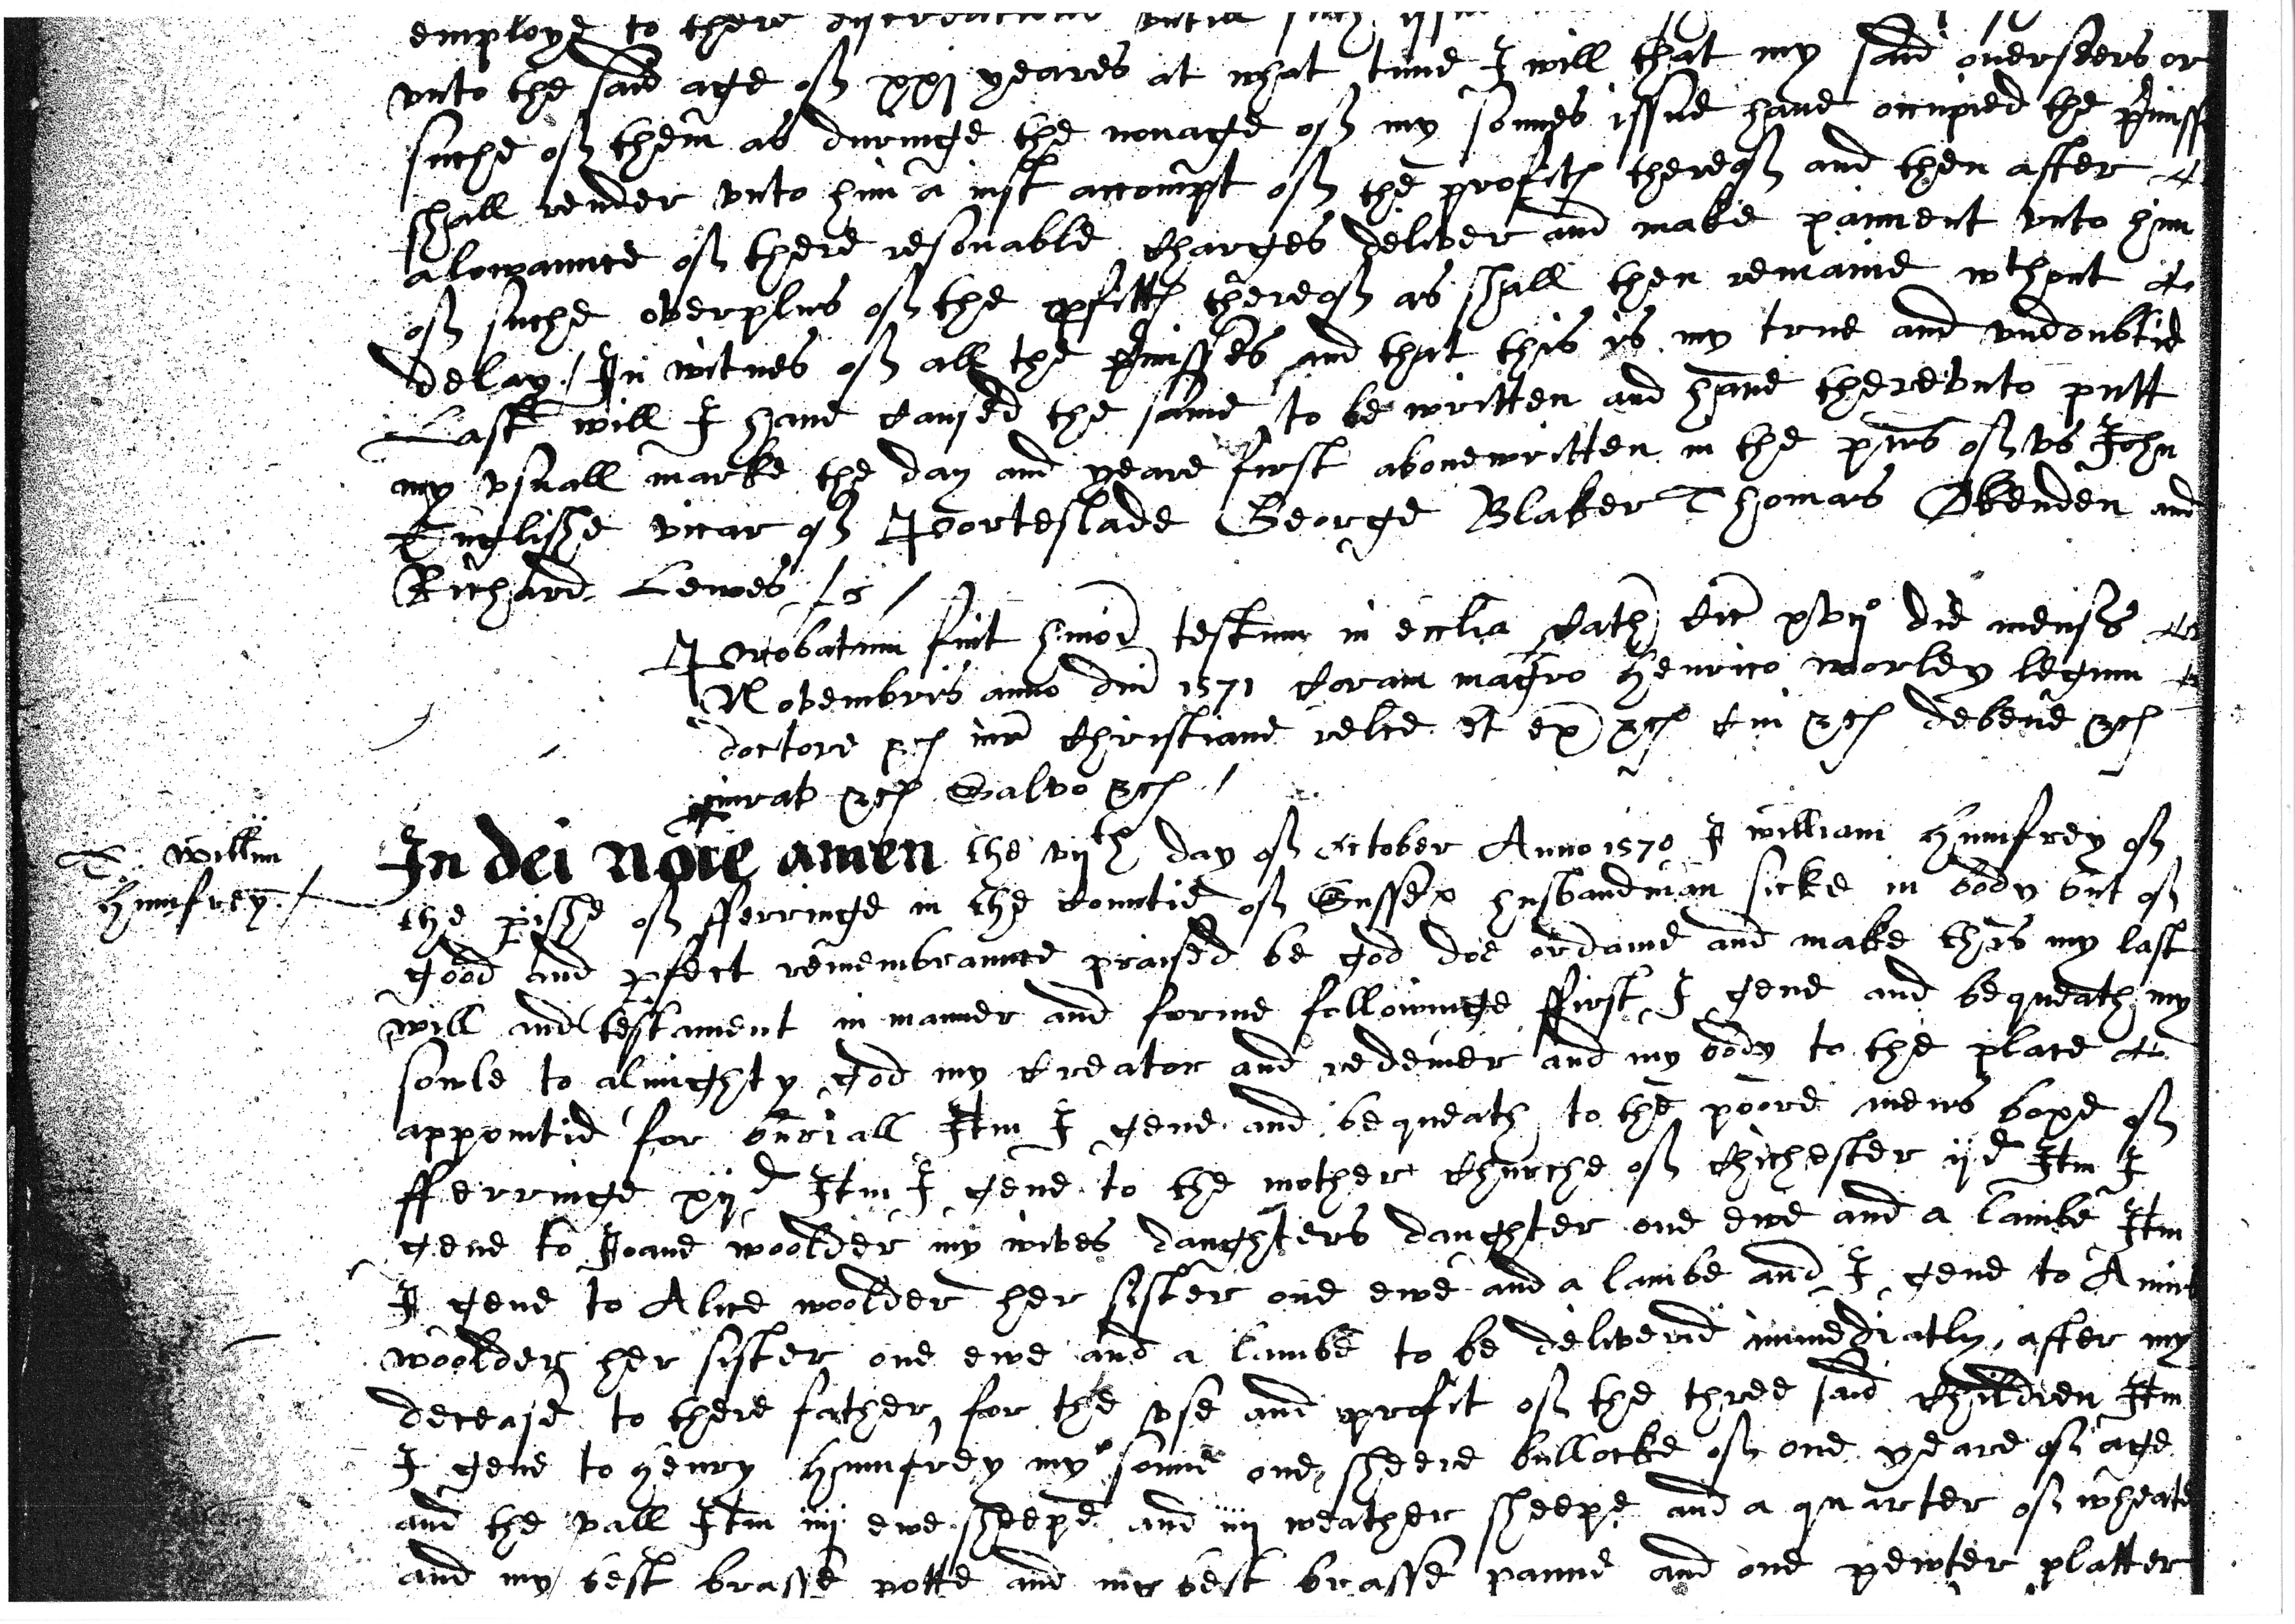 employe to there discreacions untill such issue
unto the said age of xxj yeares at what time I will that my said overseers or
suche of them as duringe the nonage of my sonnes issue have occupied the pmiss
shall render unto him a iust accompt of the profitt thereof and then after
alowaunce of there resonable charges deliver and make paiment unto him
of suche overplus of the pfitt thereof as shall then remaine wthout
delay / In witnes of all the pmisses and that this ys my true and undoubtid
Last will I have caused the same to be written and have thereunto putt
my usuall marke the day and yeare first abovewritten in the pns of us John
Englishe vicar of Porteslade George Blaker Thomas Okenden and
Richard Lewes /
Probatum fuit hmoi testum in ecclia Cath Cic xvijo die mensis
Novembris anno dni 1571 Coram magro Henrico worley legum
doctore &c iure Christiane relce et ex &c Cui &c debene &c
iurat &c Salvo &c /
T willm
Humfrey /
In dei noie amen the vijth day of October Anno 1570 I william Humfrey of
the pishe of fferringe in the Countie of Sussex husbandman sicke in body but of
good and pfect remembraunce praised be god doe ordaine and make this my last
will and testament in manner and forme followinge ffirst I geve and bequeath my
sowle to almighty god my Creator and redemer and my body to the place
appointid for buriall Itm I geve and bequeath to the poore mens boxe of
fferringe xijd Itm I geve to the mother Churche of Chichester ijd Itm I
geve to Joane woolder my wives daughters daughter one ewe and a lambe Itm
I geve to Alice woolder her sister one ewe and a lambe and I geve to
woolder her sister one ewe and a lambe to be deliverid immediatly after my
decease to there father for the use and profit of the three said Children Itm
I geve to Henry Humfrey my sonne one sheere bullocke of one yeare of age
and the vall Itm iiij ewe sheepe and iiij weather sheepe and a quarter of wheate
and my best brasse potte and my best brasse panne and one pewter platter